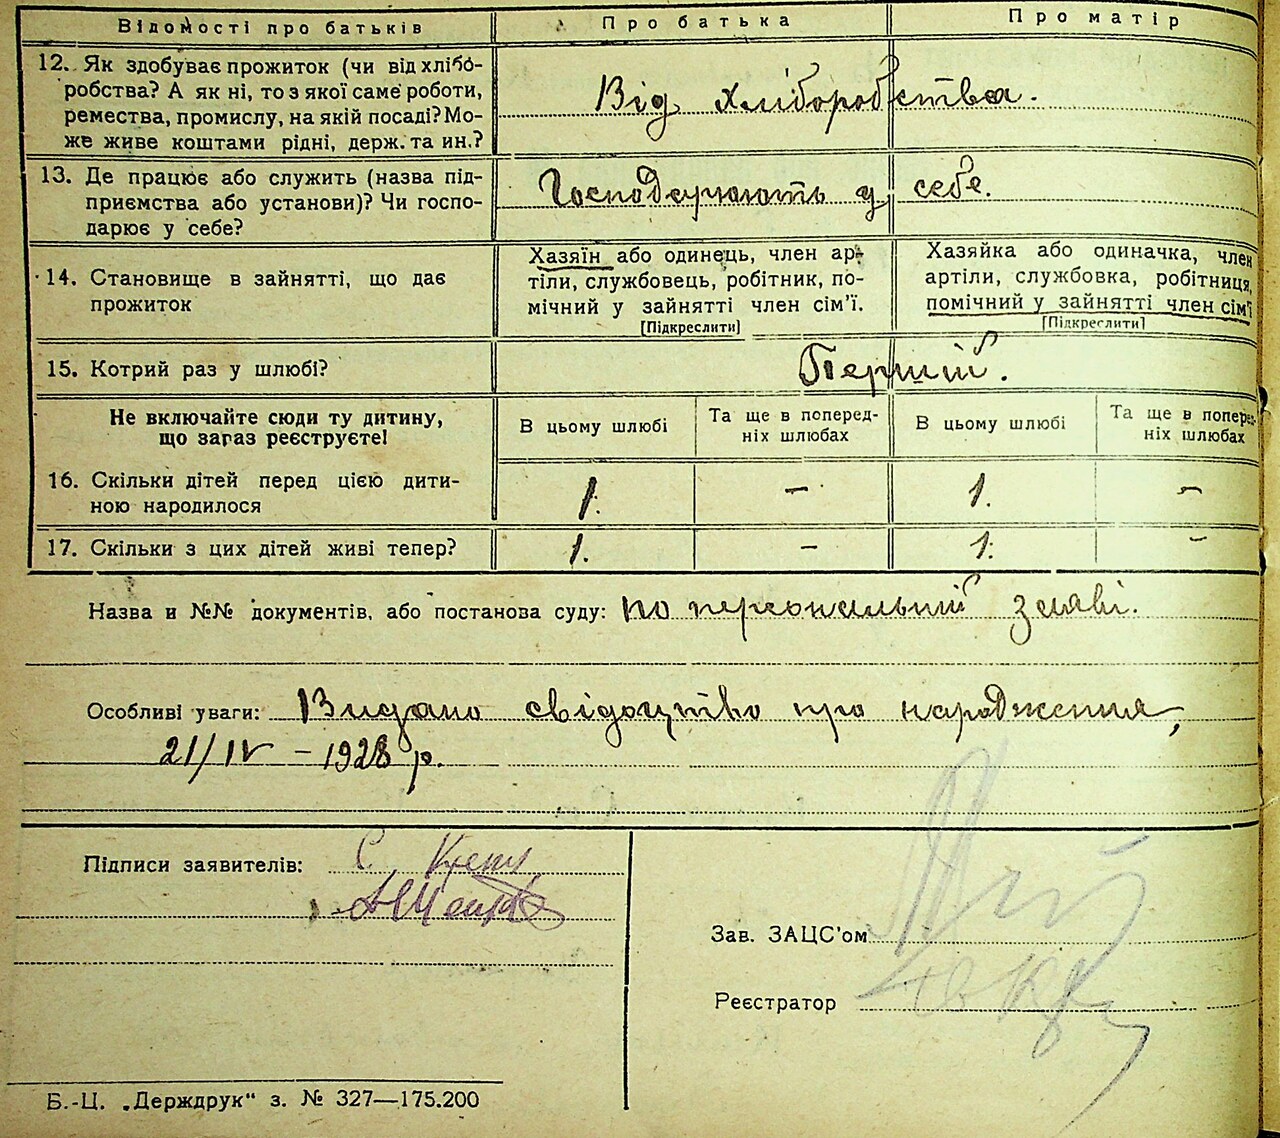 Відомості про батьків Про батька Про матір
12. Як здобуває прожиток (чи від хлібо-
робства? А як ні, то з якої саме роботи,
ремества, промислу, на якій посаді? Мо-
же живе коштами рідні, держ. та ин.?
Від хліборобства.
13. Де працює або служить (назва під-
приємства або установи)? Чи госпо-
дарює у себе?
Господарюють у себе.
14. Становище в зайнятті, що дає
прожиток
Хазяїн або одинець, член ар-
тіли, службовець, робітник, по-
мічний у зайнятті член сім'ї.
[Підкреслити]
Хазяйка або одиначка, член
артіли, службовка, робітниця,
помічний у зайнятті член сім'ї
[Підкреслити]
15. Котрий раз у шлюбі?
Перший.
Не включайте сюди ту дитину,
що зараз реєструєте!
В цьому шлюбі
Та ще в поперед-
ніх шлюбах
В цьому шлюбі
Та ще в поперед-
ніх шлюбах
16. Скільки дітей перед цією дити-
ною народилося
1. – 1. –
17. Скільки з цих дітей живі тепер? 1. – 1. –
Назва и №№ документів, або постанова суду: по персональній заяві.
Особливі уваги: Видано свідоцтво про народження,
21/IV – 1928 р.
Підписи заявителів:
Зав. ЗАЦС'ом
Реєстратор
Б.-Ц. „Держдрук“ з. № 327—175.200